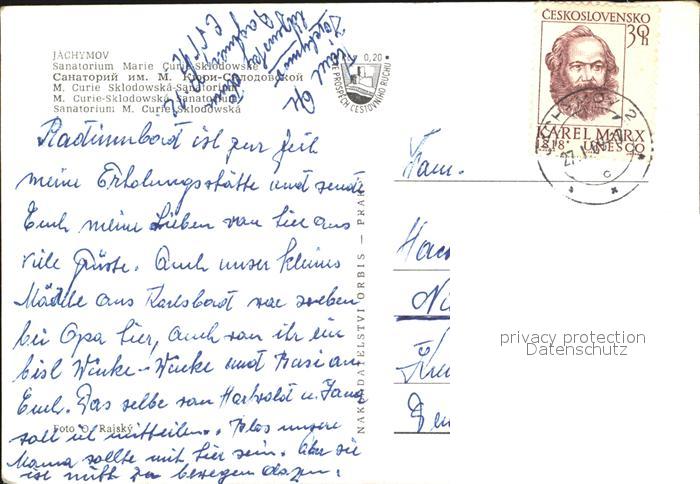 JÁCHYMOV
Sanatorium Marie Curie Sklodowské
Санаторий им. М. Кюри-Склодовской
M. Curie Sklodowská-Sanatorium
M. Curie-Sklodowská Sanatorium
Sanatorium M. Curie Sklodowská
Kčs 0,20
VE PROSPĚCH CESTOVNÍHO RUCHU
ČESKOSLOVENSKO
30h
KAREL MARX
1818 UNESCO
JÁCHYMOV
27.
c
Radiumbad ist zur Zeit
meine Erholungsstätte und sende
Euch meine Lieben von hier aus
viele Grüsse. Auch unser kleines
Mädele aus Karlsbad war soeben
bei Opa hier, auch von ihr ein
bisl Winke-Winke und Busi an
Euch. Das selbe von Harwoldt u. Jana
soll ich mitteilen. Blos unsere
Mama sollte mit hier sein. Aber sie
ist nicht zu bewegen dazu.
Foto O. Rajský
NAKLADATELSTVÍ ORBIS — PRAHA
Fam.
privacy protection
Datenschutz